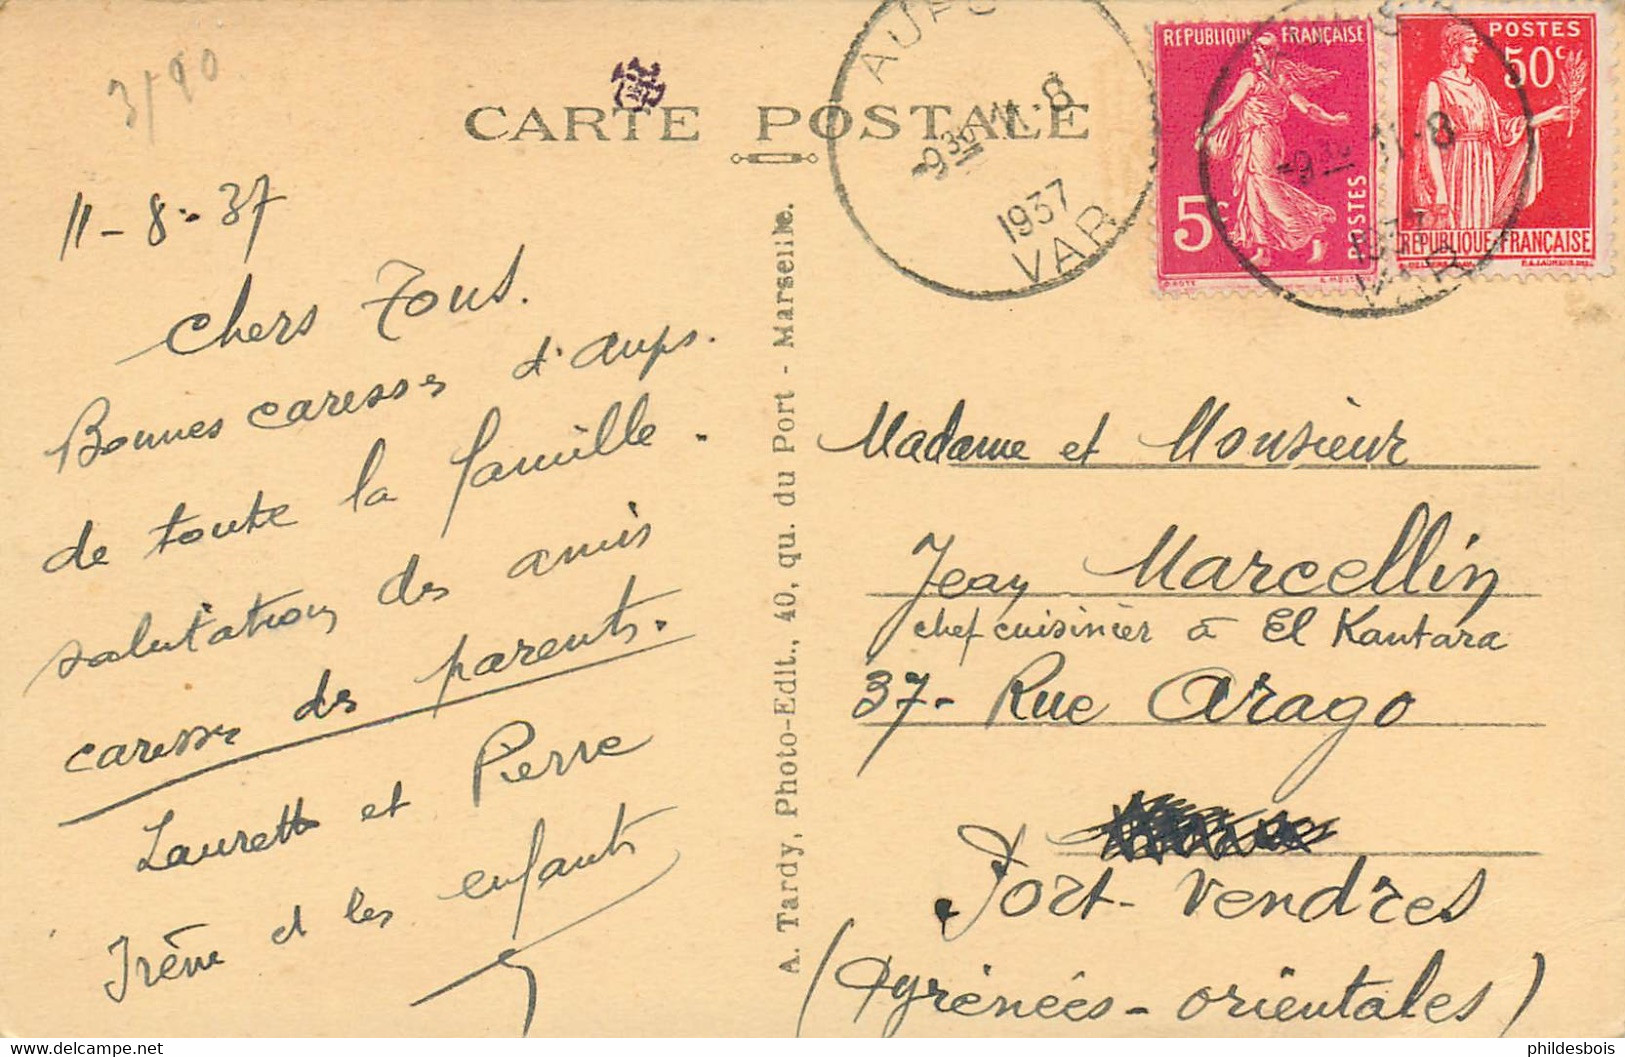 3/90
CARTE POSTALE
11-8-37
Chers Tous.
Bonnes caresses d'Aups.
de toute la famille.
salutations des amis
caresses des parents.
Laurette et Pierre
Irène et les enfants
A. Tardy, Photo-Edit., 40, qu. du Port - Marseille.
AUPS
-9 30 11-8
1937
VAR
REPUBLIQUE FRANÇAISE
5c
POSTES
POSTES
50c
REPUBLIQUE FRANÇAISE
-9 30 11-8
1937
VAR
Madame et Monsieur
Jean Marcellin
chef cuisinier à El Kantara
37- Rue Arago
Port-Vendres
(Pyrénées-orientales)
phildesbois